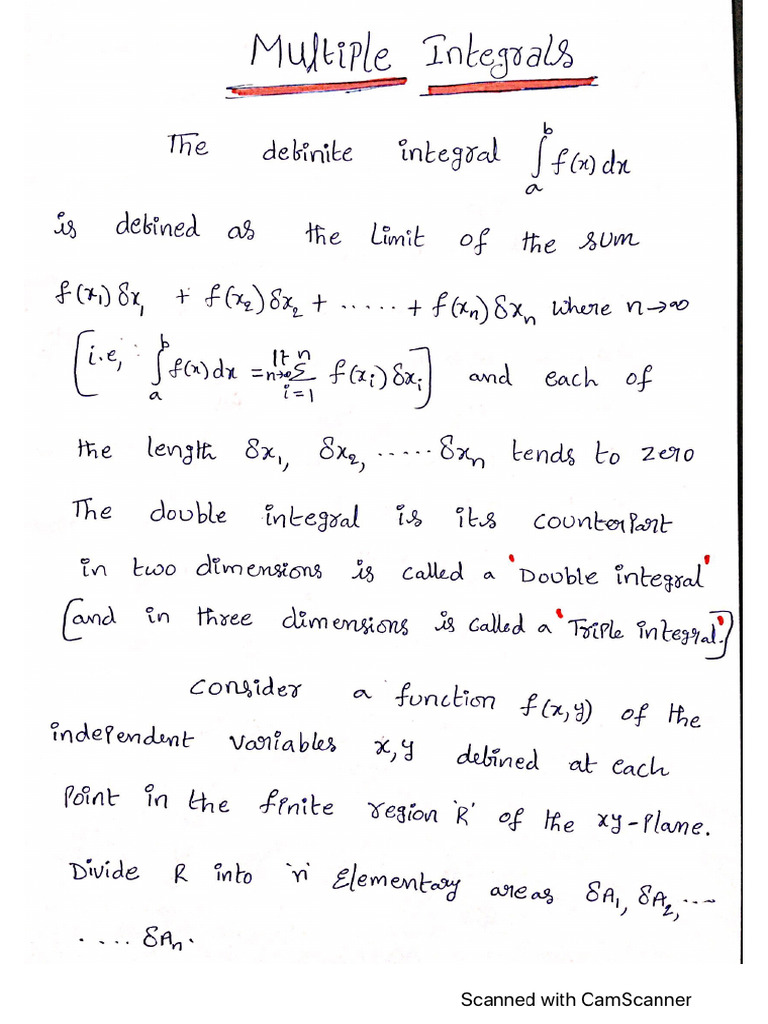 Multiple Integrals
The definite integral ∫ₐᵇ f(x) dx
is defined as the Limit of the sum
f(x₁) δx₁ + f(x₂) δx₂ + ..... + f(xₙ) δxₙ where n→∞
[i.e, ∫ₐᵇ f(x) dx = lt n→∞ Σⁿᵢ₌₁ f(xᵢ) δxᵢ] and each of
the length δx₁, δx₂, ..... δxₙ tends to zero
The double integral is its counterpart
in two dimensions is called a 'Double integral'
[and in three dimensions is called a 'Triple integral.']
Consider a function f(x,y) of the
independent variables x,y defined at each
Point in the finite region 'R' of the xy-Plane.
Divide R into 'n' Elementary areas δA₁, δA₂, ...
..... δAₙ.
Scanned with CamScanner